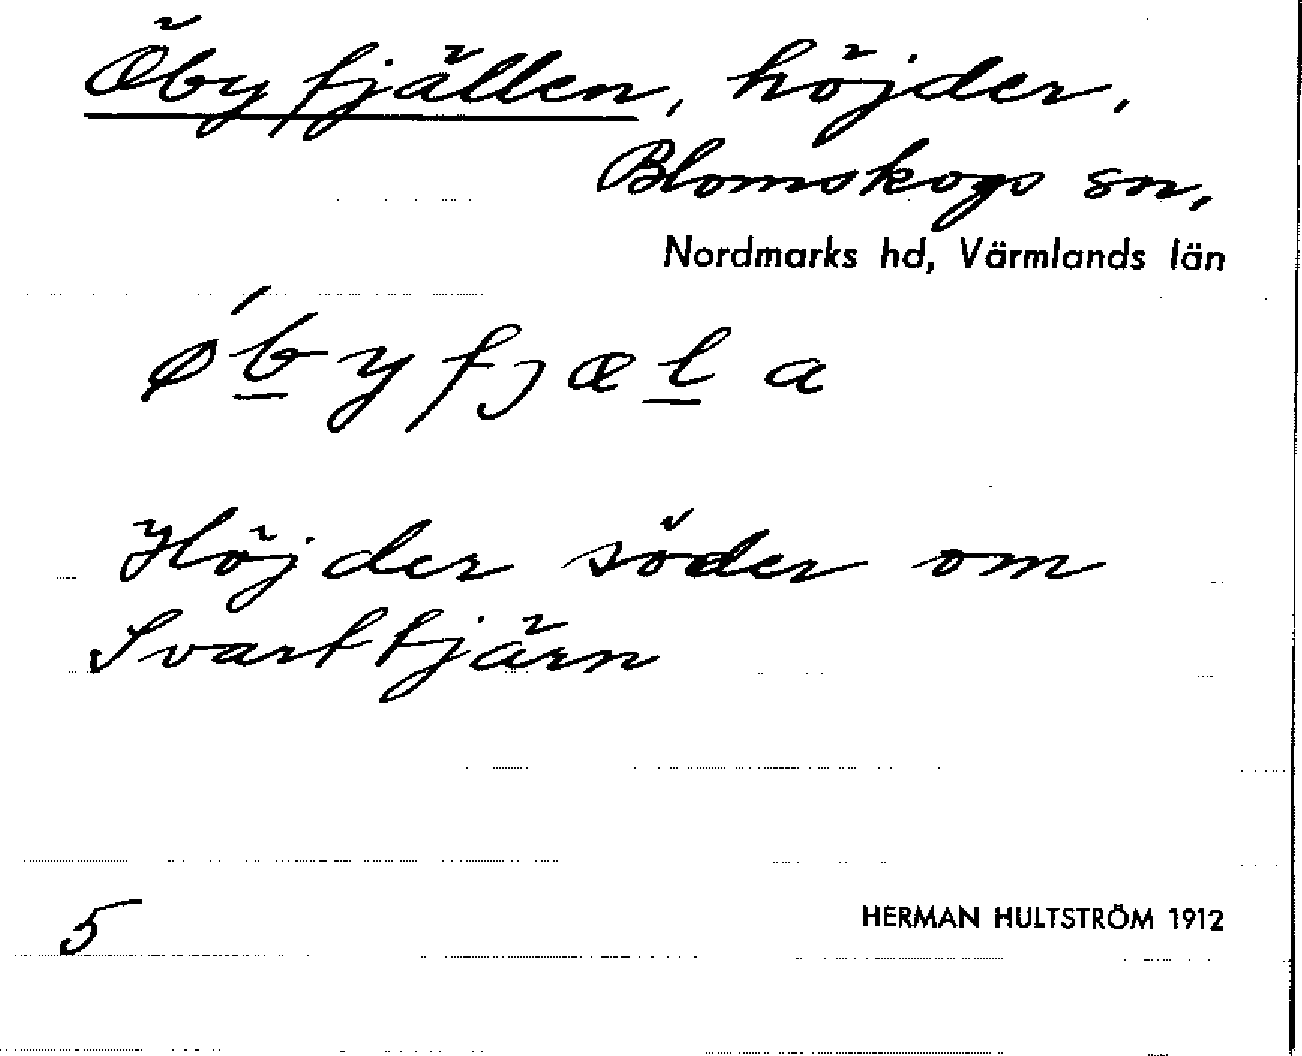 Öbyfjällen, höjder,
Blomskogs sn,
Nordmarks hd, Värmlands län
ǿb̲yfjæl̲a
Höjder söder om
Svarttjärn
5
HERMAN HULTSTRÖM 1912